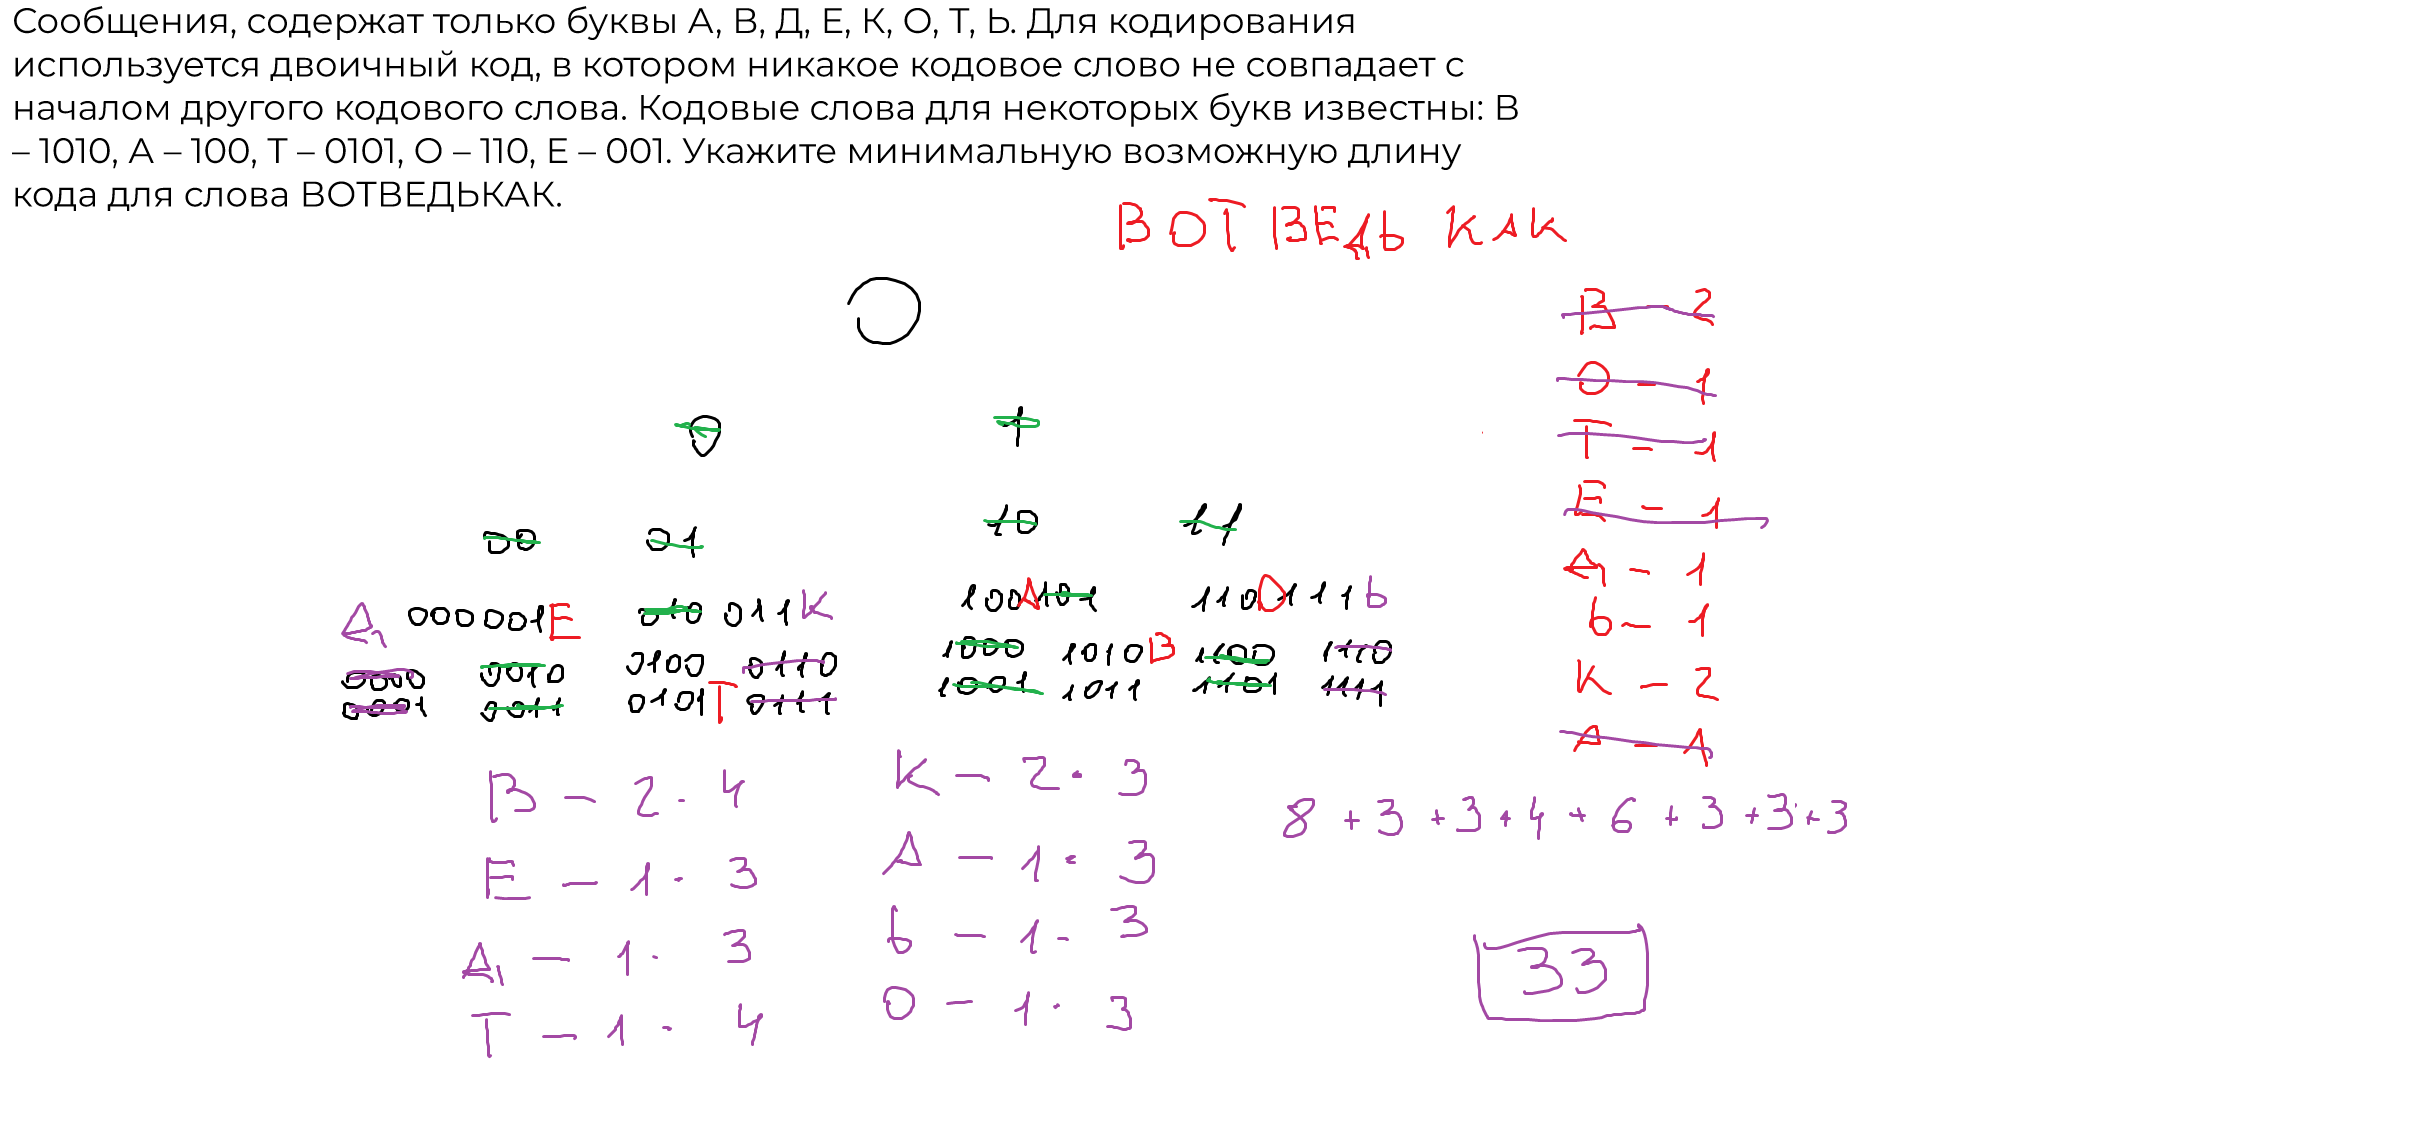 Сообщения, содержат только буквы А, В, Д, Е, К, О, Т, Ь. Для кодирования
используется двоичный код, в котором никакое кодовое слово не совпадает с
началом другого кодового слова. Кодовые слова для некоторых букв известны: В
– 1010, А – 100, Т – 0101, О – 110, Е – 001. Укажите минимальную возможную длину
кода для слова ВОТВЕДЬКАК.
ВОТ ВЕДЬ КАК
В – 2
О – 1
Т – 1
Е – 1
Д – 1
Ь – 1
К – 2
А – А
0 1
00 01 10 11
Д 000 001 Е 010 011 К 100 А 101 110 О 111 Ь
0000 0010 0100 0110 1000 1010 В 1100 1110
0001 0011 0101 Т 0111 1001 1011 1101 1111
В – 2 · 4
Е – 1 · 3
Д – 1 · 3
Т – 1 · 4
К – 2 · 3
А – 1 · 3
Ь – 1 · 3
О – 1 · 3
8 + 3 + 3 + 4 + 6 + 3 + 3 + 3
33